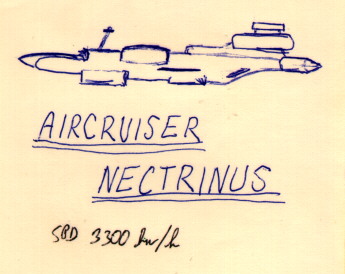 AIRCRUISER
NECTRINUS
SBD 3300 km/h